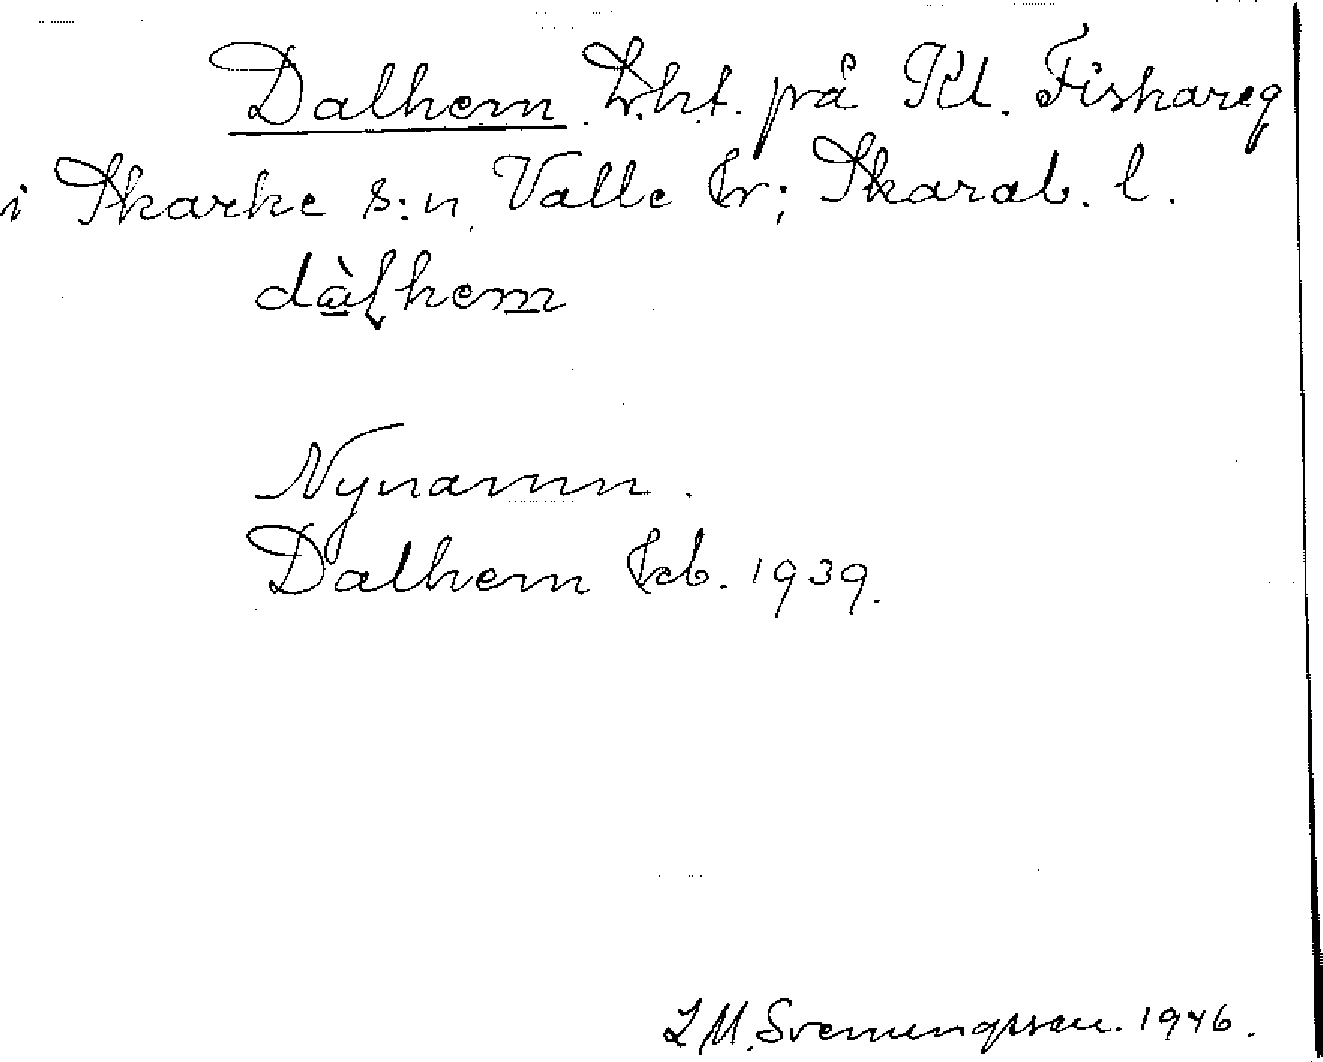 Dalhem lht. på Kl. Fiskareg
i Skarke s:n, Valle hr; Skarab. l.
dàlhem
Nynamn.
Dalhem kb. 1939.
L M. Svenungsson. 1946.